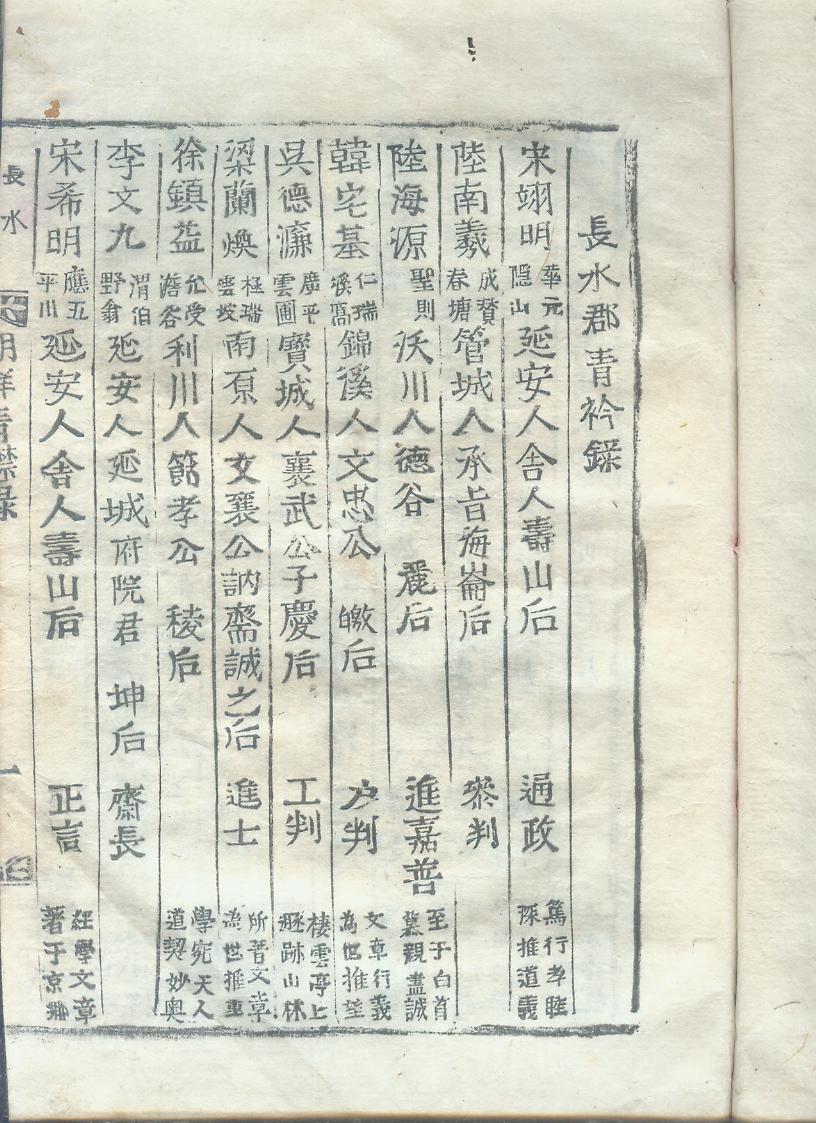 長水郡青衿錄
宋翊明 華元 隱山 延安人舍人壽山后 通政 篤行孝睦 深推道義
陸南羲 成贊 春塘 管城人承旨海崙后 參判
陸海源 聖則 沃川人德谷 麗后 進嘉善 至于白首 慕親盡誠
韓宅基 仁瑞 溪窩 錦溪人文忠公 皦后 户判 文章行義 為世推望
吳德濂 廣平 雲圃 寶城人襄武公子慶后 工判 棲雲亭上 遯跡山林
梁蘭煥 極瑞 雲坡 南原人文襄公訥齋誠之后 進士 所著文章 為世推重
徐鎮益 允受 澹谷 利川人節孝公 稜后 學究天人 道契妙奧
李文九 渭伯 野翁 延安人延城府院君 坤后 齋長
宋希明 應五 平川 延安人舍人壽山后 正言 經學文章 著于京鄉
長水
一